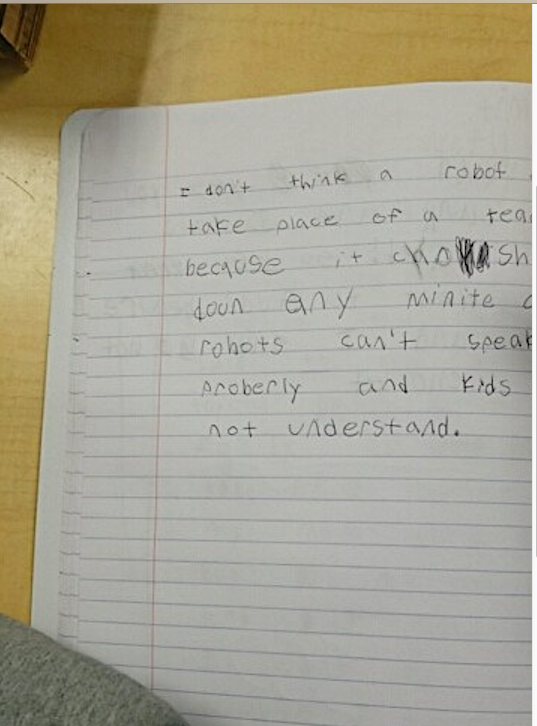 I don't think a robot
take place of a tea
because it sh
doun any minite
robots can't speak
proberly and kids
not understand.